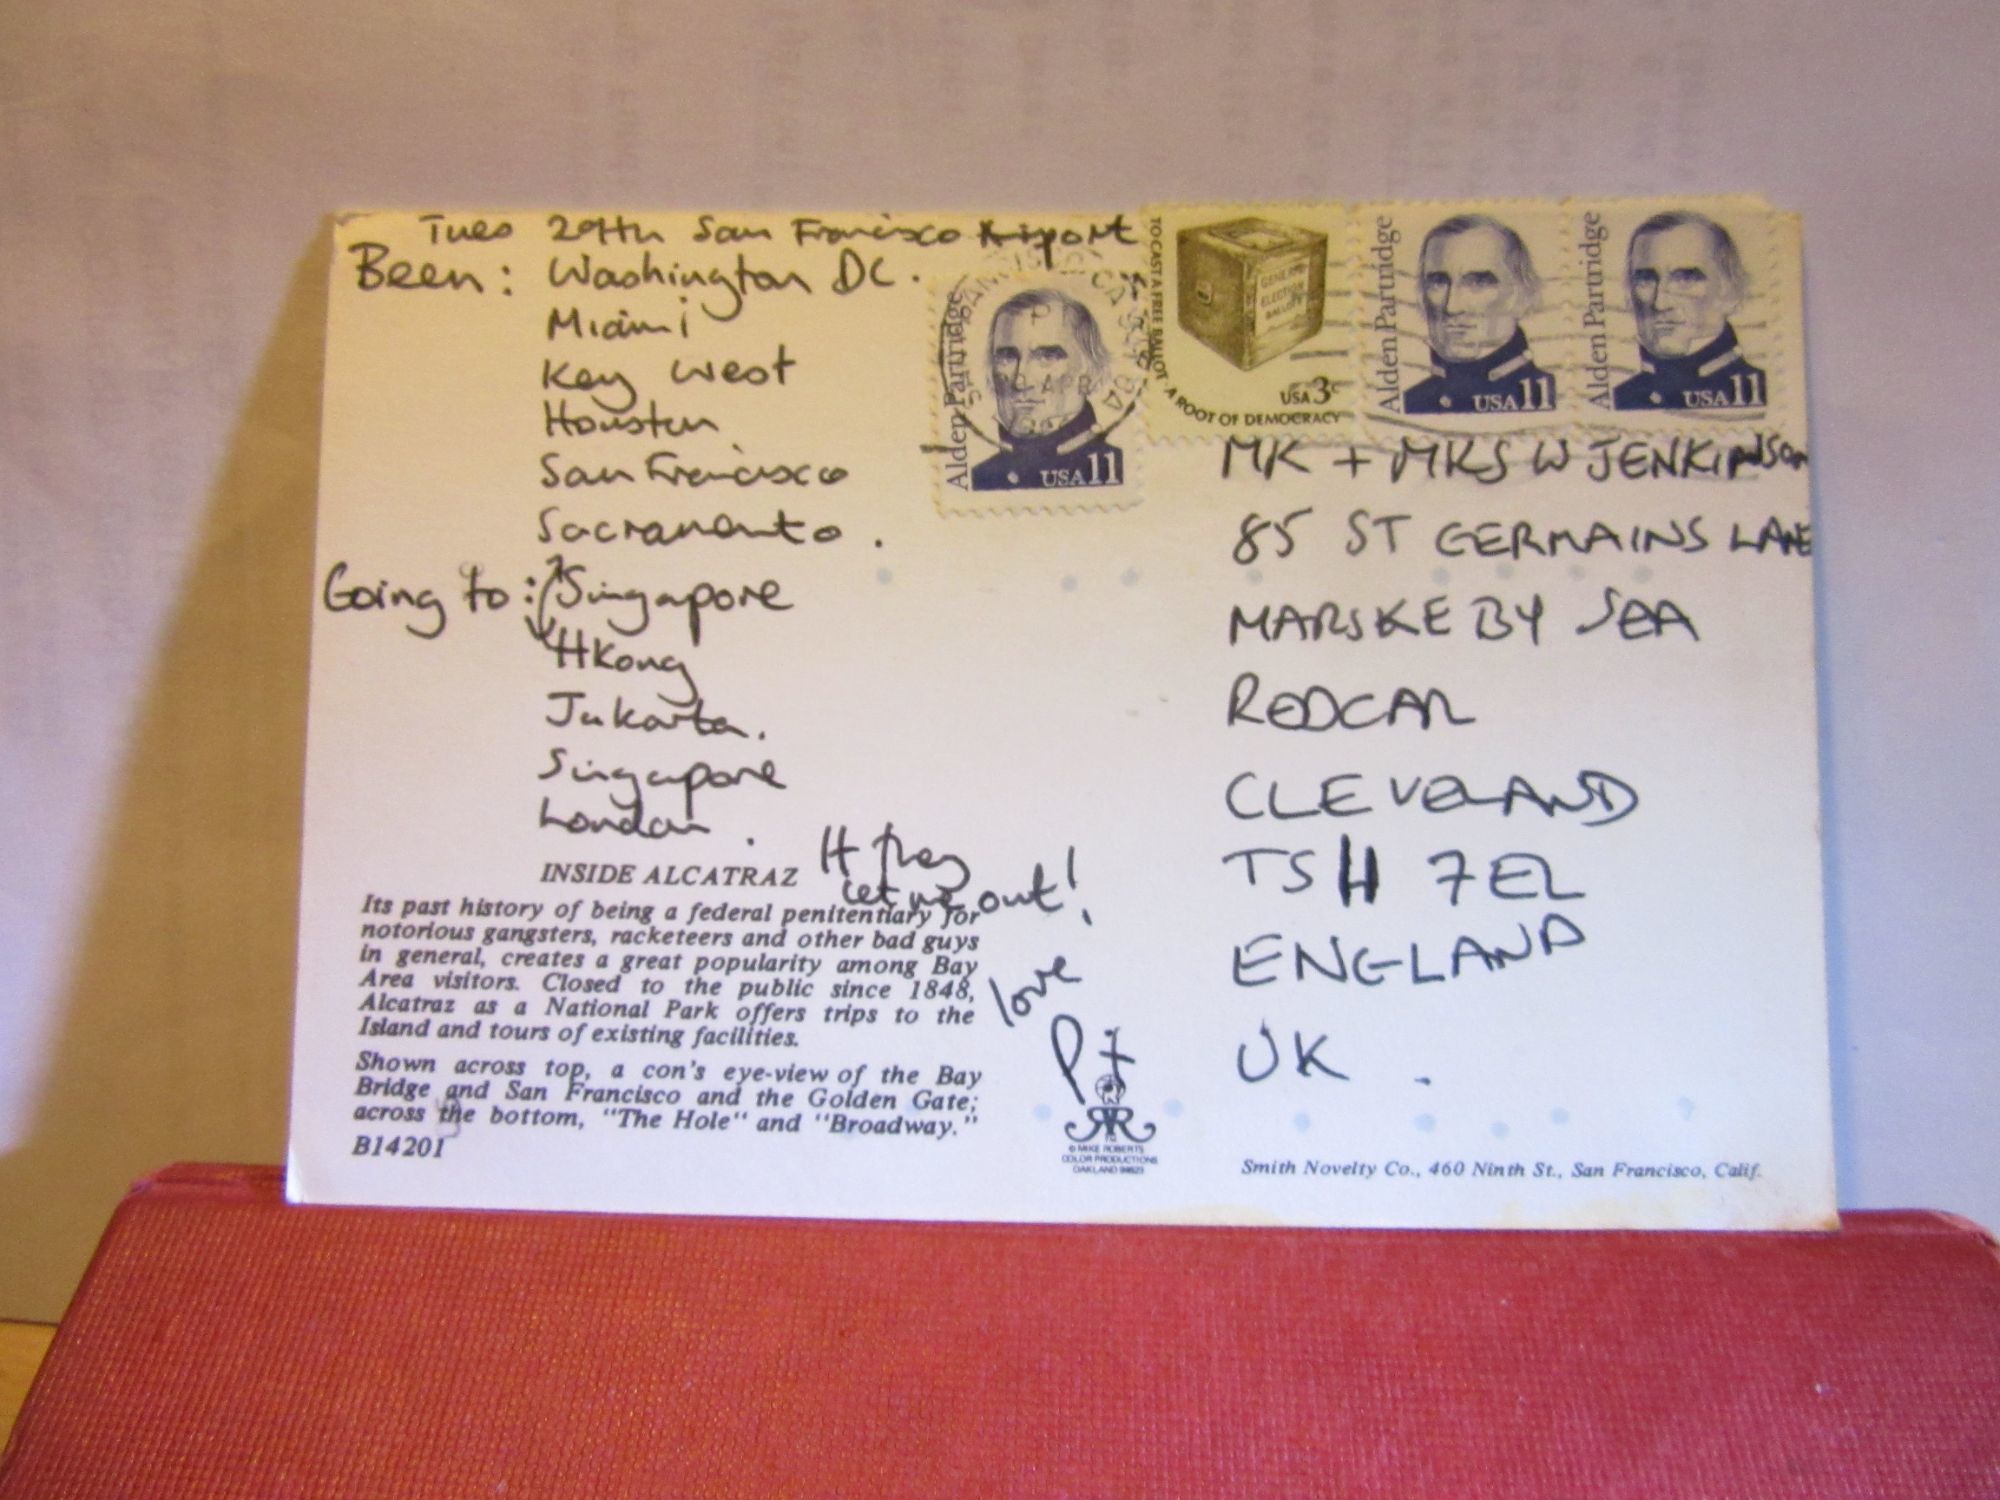 Tues 29th San Francisco Airport
Been: Washington DC.
Miami
Key West
Houston
San Francisco
Sacramento.
Going to: Singapore
HKong
Jakarta.
Singapore
London.
If they
let me out!
love
P
INSIDE ALCATRAZ
Its past history of being a federal penitentiary for
notorious gangsters, racketeers and other bad guys
in general, creates a great popularity among Bay
Area visitors. Closed to the public since 1848,
Alcatraz as a National Park offers trips to the
Island and tours of existing facilities.
Shown across top, a con's eye-view of the Bay
Bridge and San Francisco and the Golden Gate;
across the bottom, "The Hole" and "Broadway."
B14201
© MIKE ROBERTS
COLOR PRODUCTIONS
OAKLAND 94623
Alden Partridge
USA 11
TO CAST A FREE BALLOT · A ROOT OF DEMOCRACY
GENERAL
ELECTION
BALLOT
USA 3c
Alden Partridge
USA 11
Alden Partridge
USA 11
MR + MRS W JENKINSON
85 ST GERMAINS LANE
MARSKE BY SEA
REDCAR
CLEVELAND
TS11 7EL
ENGLAND
UK.
Smith Novelty Co., 460 Ninth St., San Francisco, Calif.